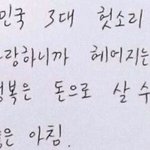 민국 3대 헛소리
랑하니까 헤어지는
복은 돈으로 살 수
은 아침.